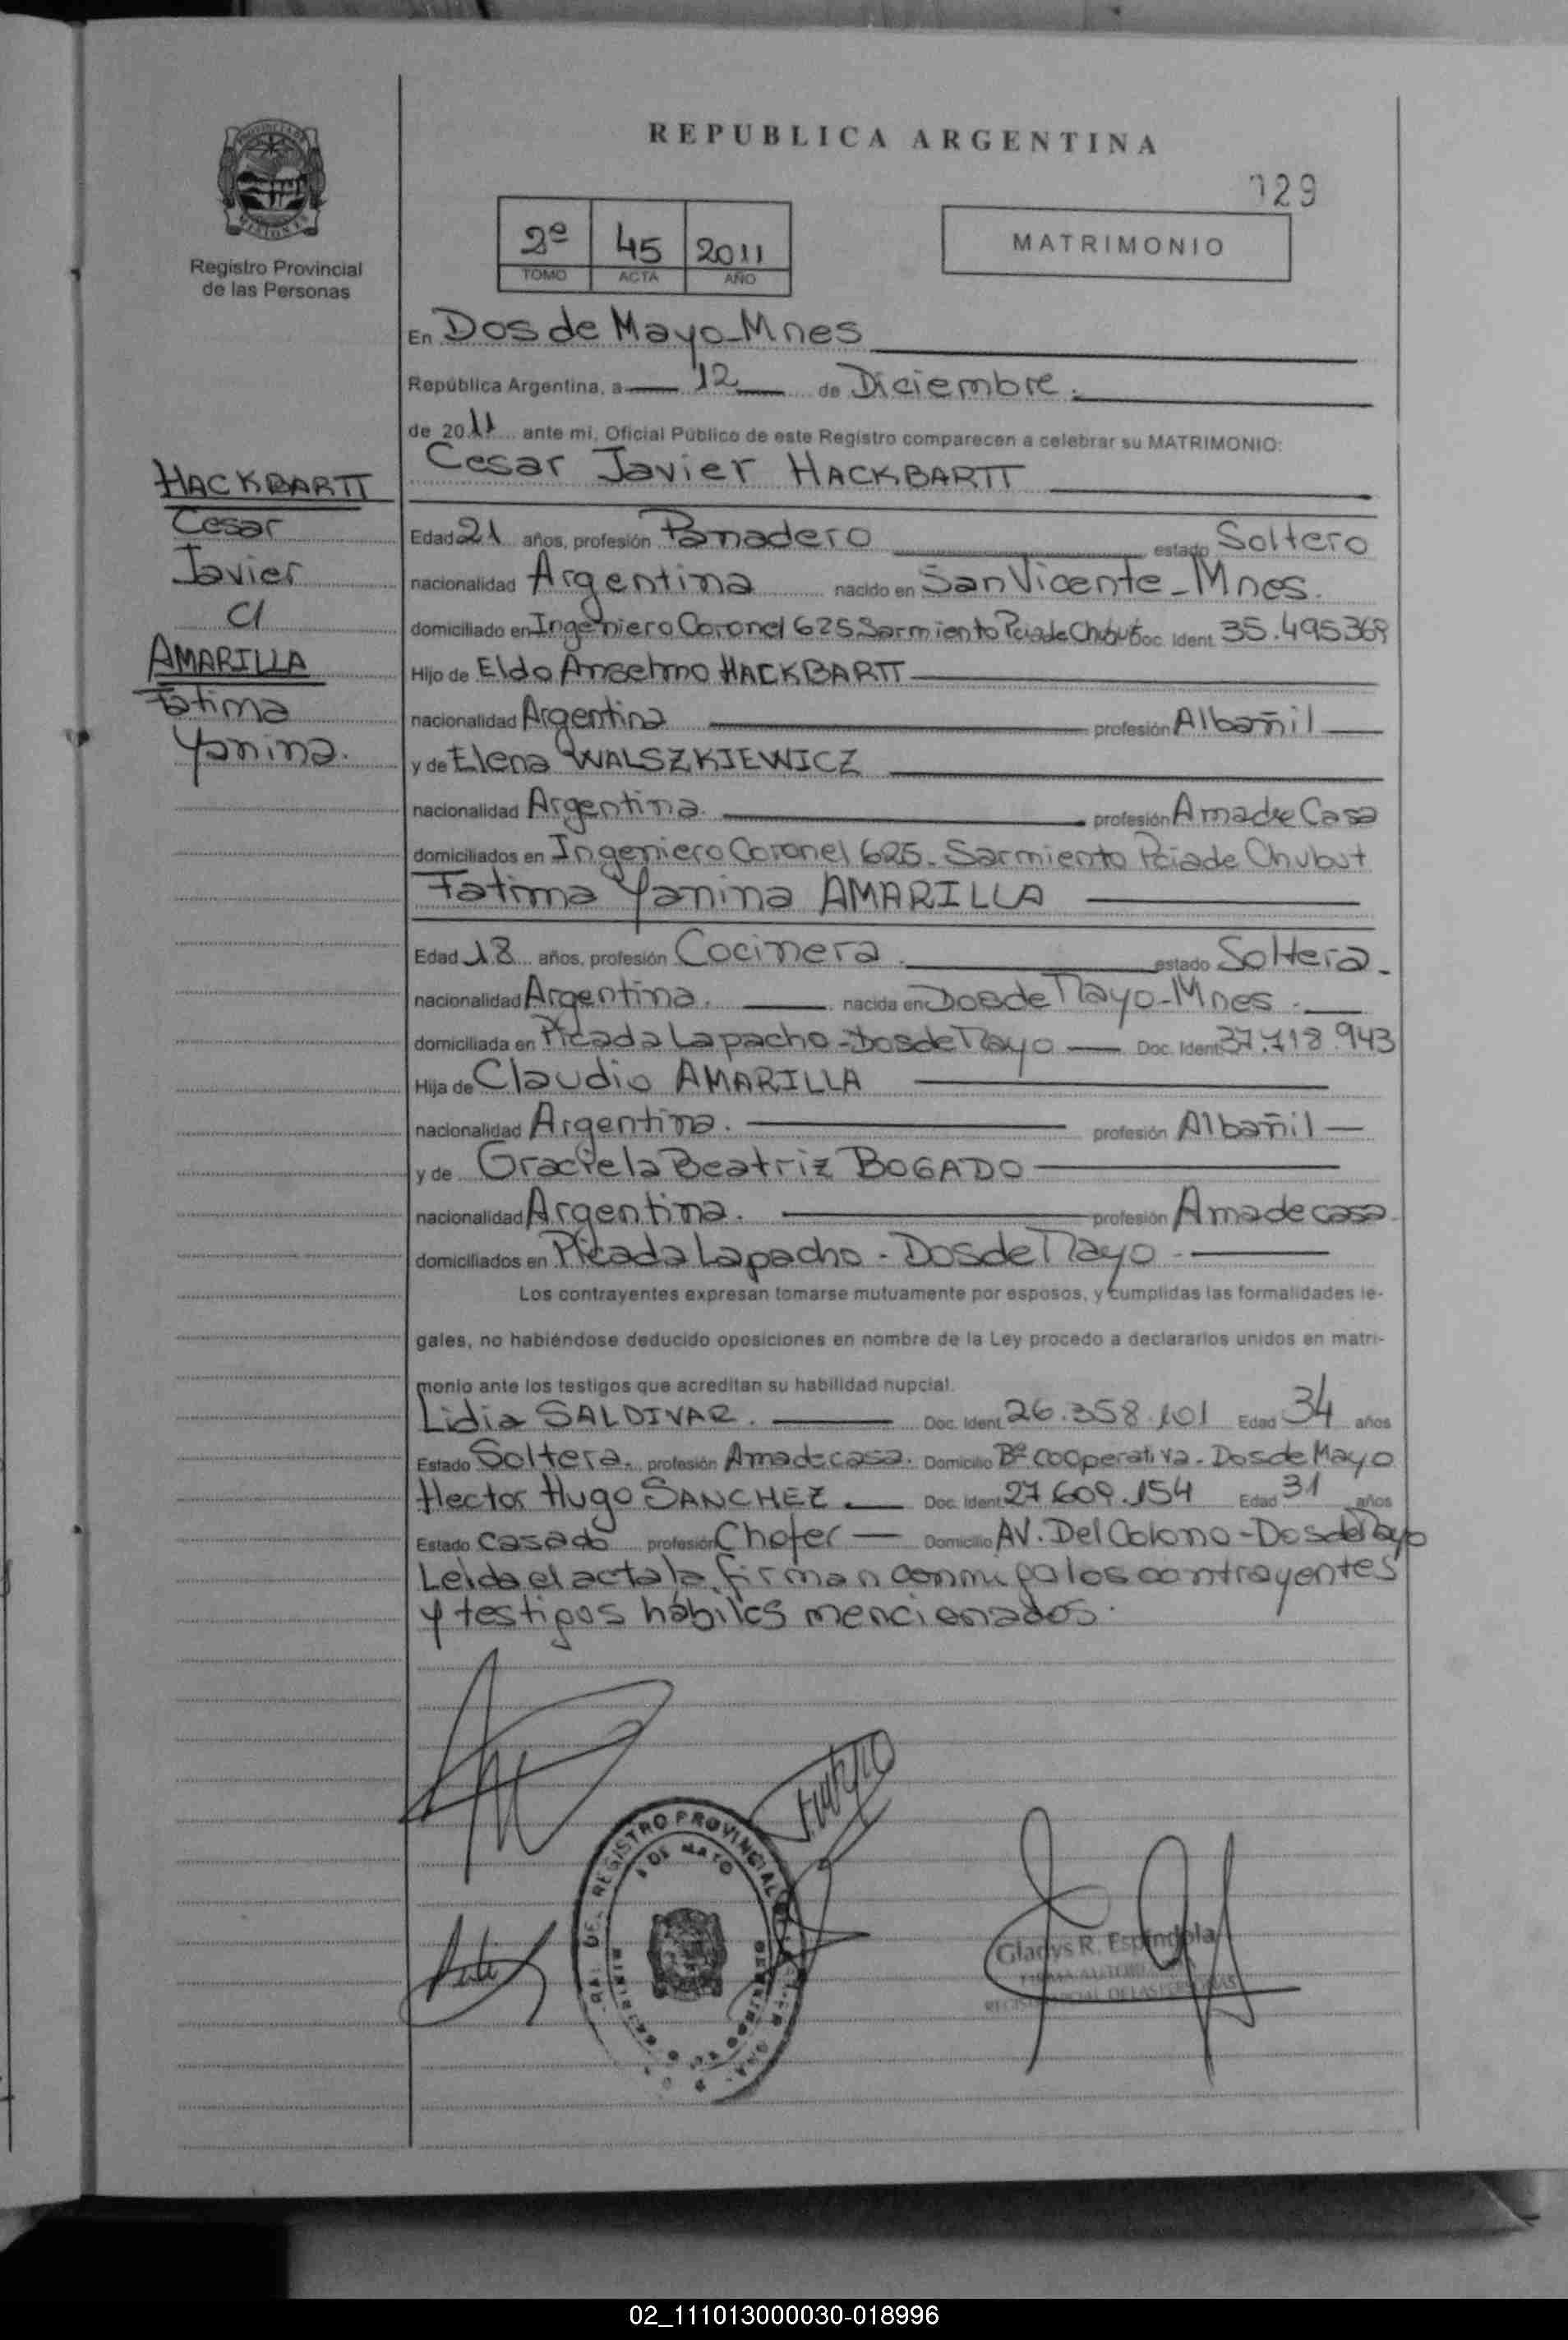 REPUBLICA ARGENTINA
129
Registro Provincial
de las Personas
2º 45 2011
TOMO ACTA AÑO
MATRIMONIO
En Dos de Mayo-Mnes
República Argentina, a 12 de Diciembre.
de 2011 ante mi, Oficial Público de este Registro comparecen a celebrar su MATRIMONIO:
Cesar Javier HACKBARTT
HACKBARTT
Cesar
Javier
C/
AMARILLA
Fatima
Yanina.
Edad 21 años, profesión Panadero estado Soltero
nacionalidad Argentina nacido en San Vicente-Mnes.
domiciliado en Ingeniero Coronel 625 Sarmiento Pcia de Chubut Doc. Ident. 35.495369
Hijo de Eldo Anselmo HACKBARTT
nacionalidad Argentina profesión Albañil
y de Elena WALSZKIEWICZ
nacionalidad Argentina. profesión Ama de Casa
domiciliados en Ingeniero Coronel 625. Sarmiento Pcia de Chubut
Fatima Yanina AMARILLA
Edad 18 años, profesión Cocinera. estado Soltera.
nacionalidad Argentina. nacida en Dos de Mayo-Mnes.
domiciliada en Picada Lapacho-Dos de Mayo Doc. Ident. 37.718.943
Hija de Claudio AMARILLA
nacionalidad Argentina. profesión Albañil
y de Graciela Beatriz BOGADO
nacionalidad Argentina. profesión Ama de casa.
domiciliados en Picada Lapacho - Dos de Mayo
Los contrayentes expresan tomarse mutuamente por esposos, y cumplidas las formalidades le-
gales, no habiéndose deducido oposiciones en nombre de la Ley procedo a declararlos unidos en matri-
monio ante los testigos que acreditan su habilidad nupcial.
Lidia SALDIVAR. Doc. Ident. 26.358.101 Edad 34 años
Estado Soltera. profesión Ama de casa. Domicilio Bº cooperativa. Dos de Mayo
Hector Hugo SANCHEZ Doc. Ident 27.609.154 Edad 31 años
Estado Casado profesión Chofer Domicilio AV. Del Colono-Dos de Mayo
Leida el acta la firman conmigo los contrayentes
y testigos hábiles mencionados.
DEL REGISTRO PROVINCIAL
DE MAYO
MISIONES
Gladys R. Espindola
FIRMA AUTORIZADA
REGIST. PROVINCIAL DE LAS PERSONAS
02_111013000030-018996